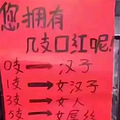 您拥有
几支口红呢!
0支→汉子
1支→女汉子
3支→女人
5支→女屌丝